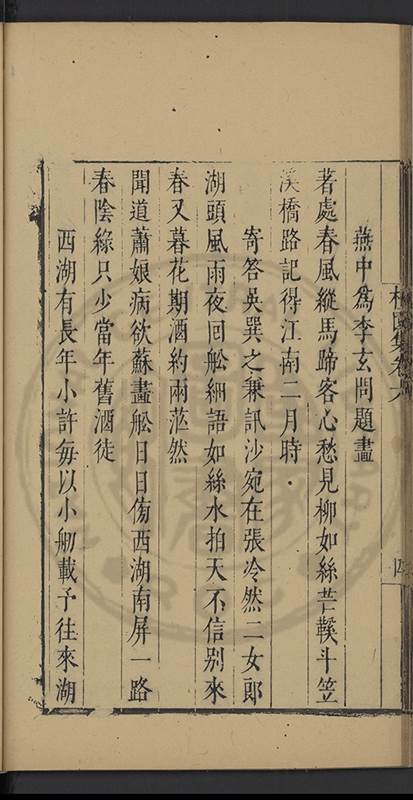 燕中爲李玄問題畫
著處春風縱馬蹄客心愁見柳如絲芒鞵斗笠
溪橋路記得江南二月時
寄答吳巽之兼訊沙宛在張冷然二女郎
湖頭風雨夜回舩細語如絲水拍天不信別來
春又暮花期酒約兩茫然
聞道蕭娘病欲蘇畫舩日日傍西湖南屏一路
春陰綠只少當年舊酒徒
西湖有長年小許每以小舠載予往來湖